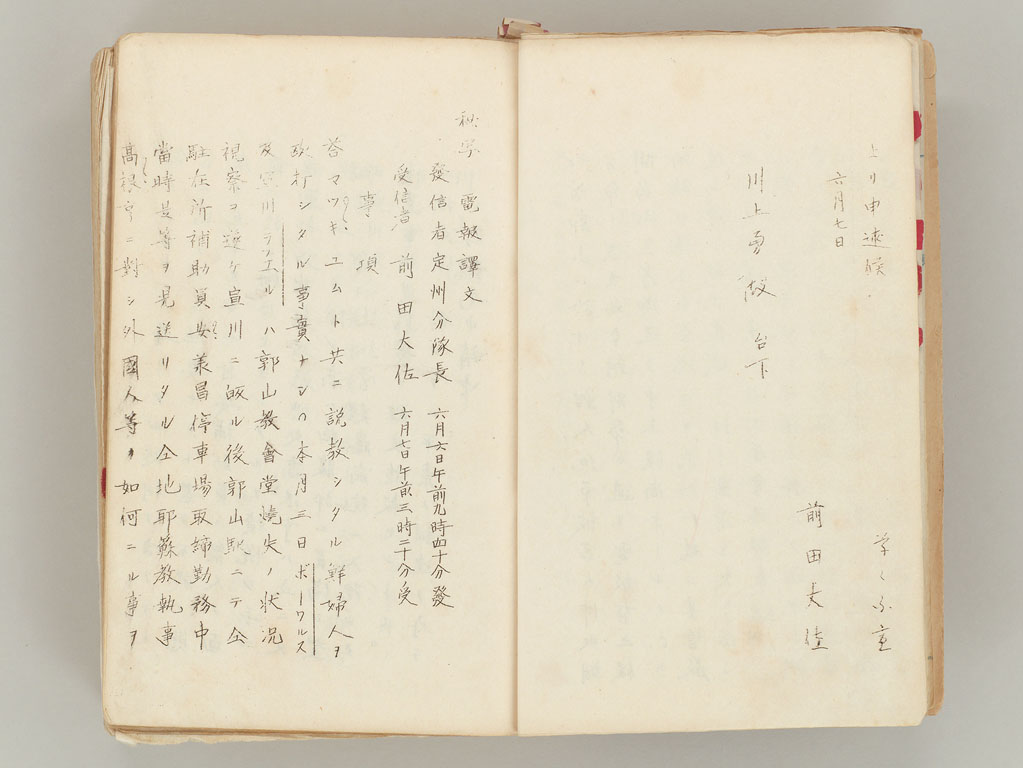 上リ申遠候
草々不宣
六月七日
前田大佐
川上勇殿 台下
秘写 電報譯文
發信者 定州分隊長 六月六日午前九時四十分發
受信者 前田大佐 六月七日午前三時二十分受
事項
答マツキユムト共ニ説教シタル鮮婦人ヲ
欧打シタル事實ナシ 本月三日ボーワルス
及宣川テリエルハ郭山教會堂燒失ノ状况
視察ヲ遂ケ宣川ニ皈ル後郭山駅ニテ仝
駐在所補助員 義昌停車場取締勤務中
當時是等ヲ見送リタル仝地耶蘇教執事
高根 ニ對シ外國人等ハ如何ニル事ヲ